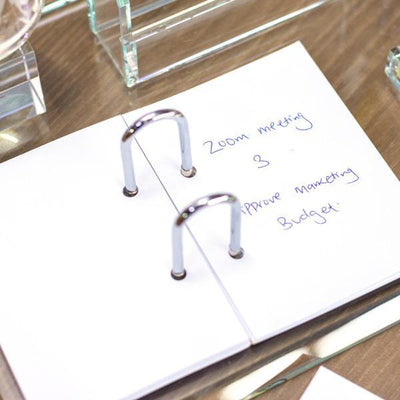 Zoom meeting
3
Approve Marketing
Budget.